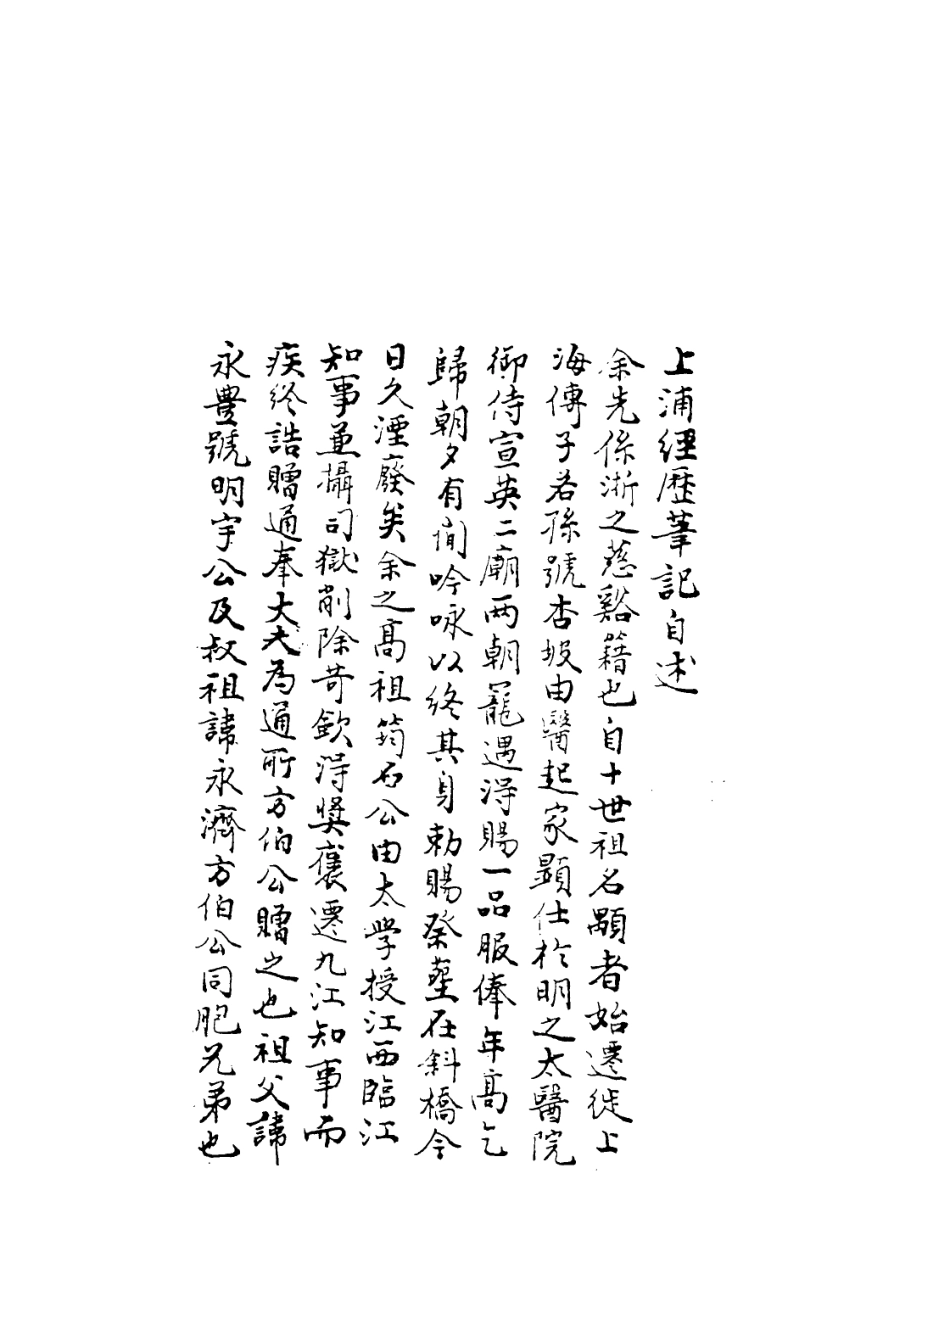 上浦經歷筆記自述
余先係浙之慈谿籍也自十世祖名顒者始遷徙上
海傳子若孫號杏坡由醫起家顯仕於明之太醫院
御侍宣英二廟两朝寵遇淂賜一品服俸年高乞
歸朝夕有間吟咏以終其身勅賜祭塟在斜橋今
日久湮廢矣余之高祖筠石公由太學授江西臨江
知事並攝司獄削除苛歛淂奬褒遷九江知事而
疾终誥贈通奉大夫為通所方伯公贈之也祖父諱
永豊號明宇公及叔祖諱永濟方伯公同胞兄弟也